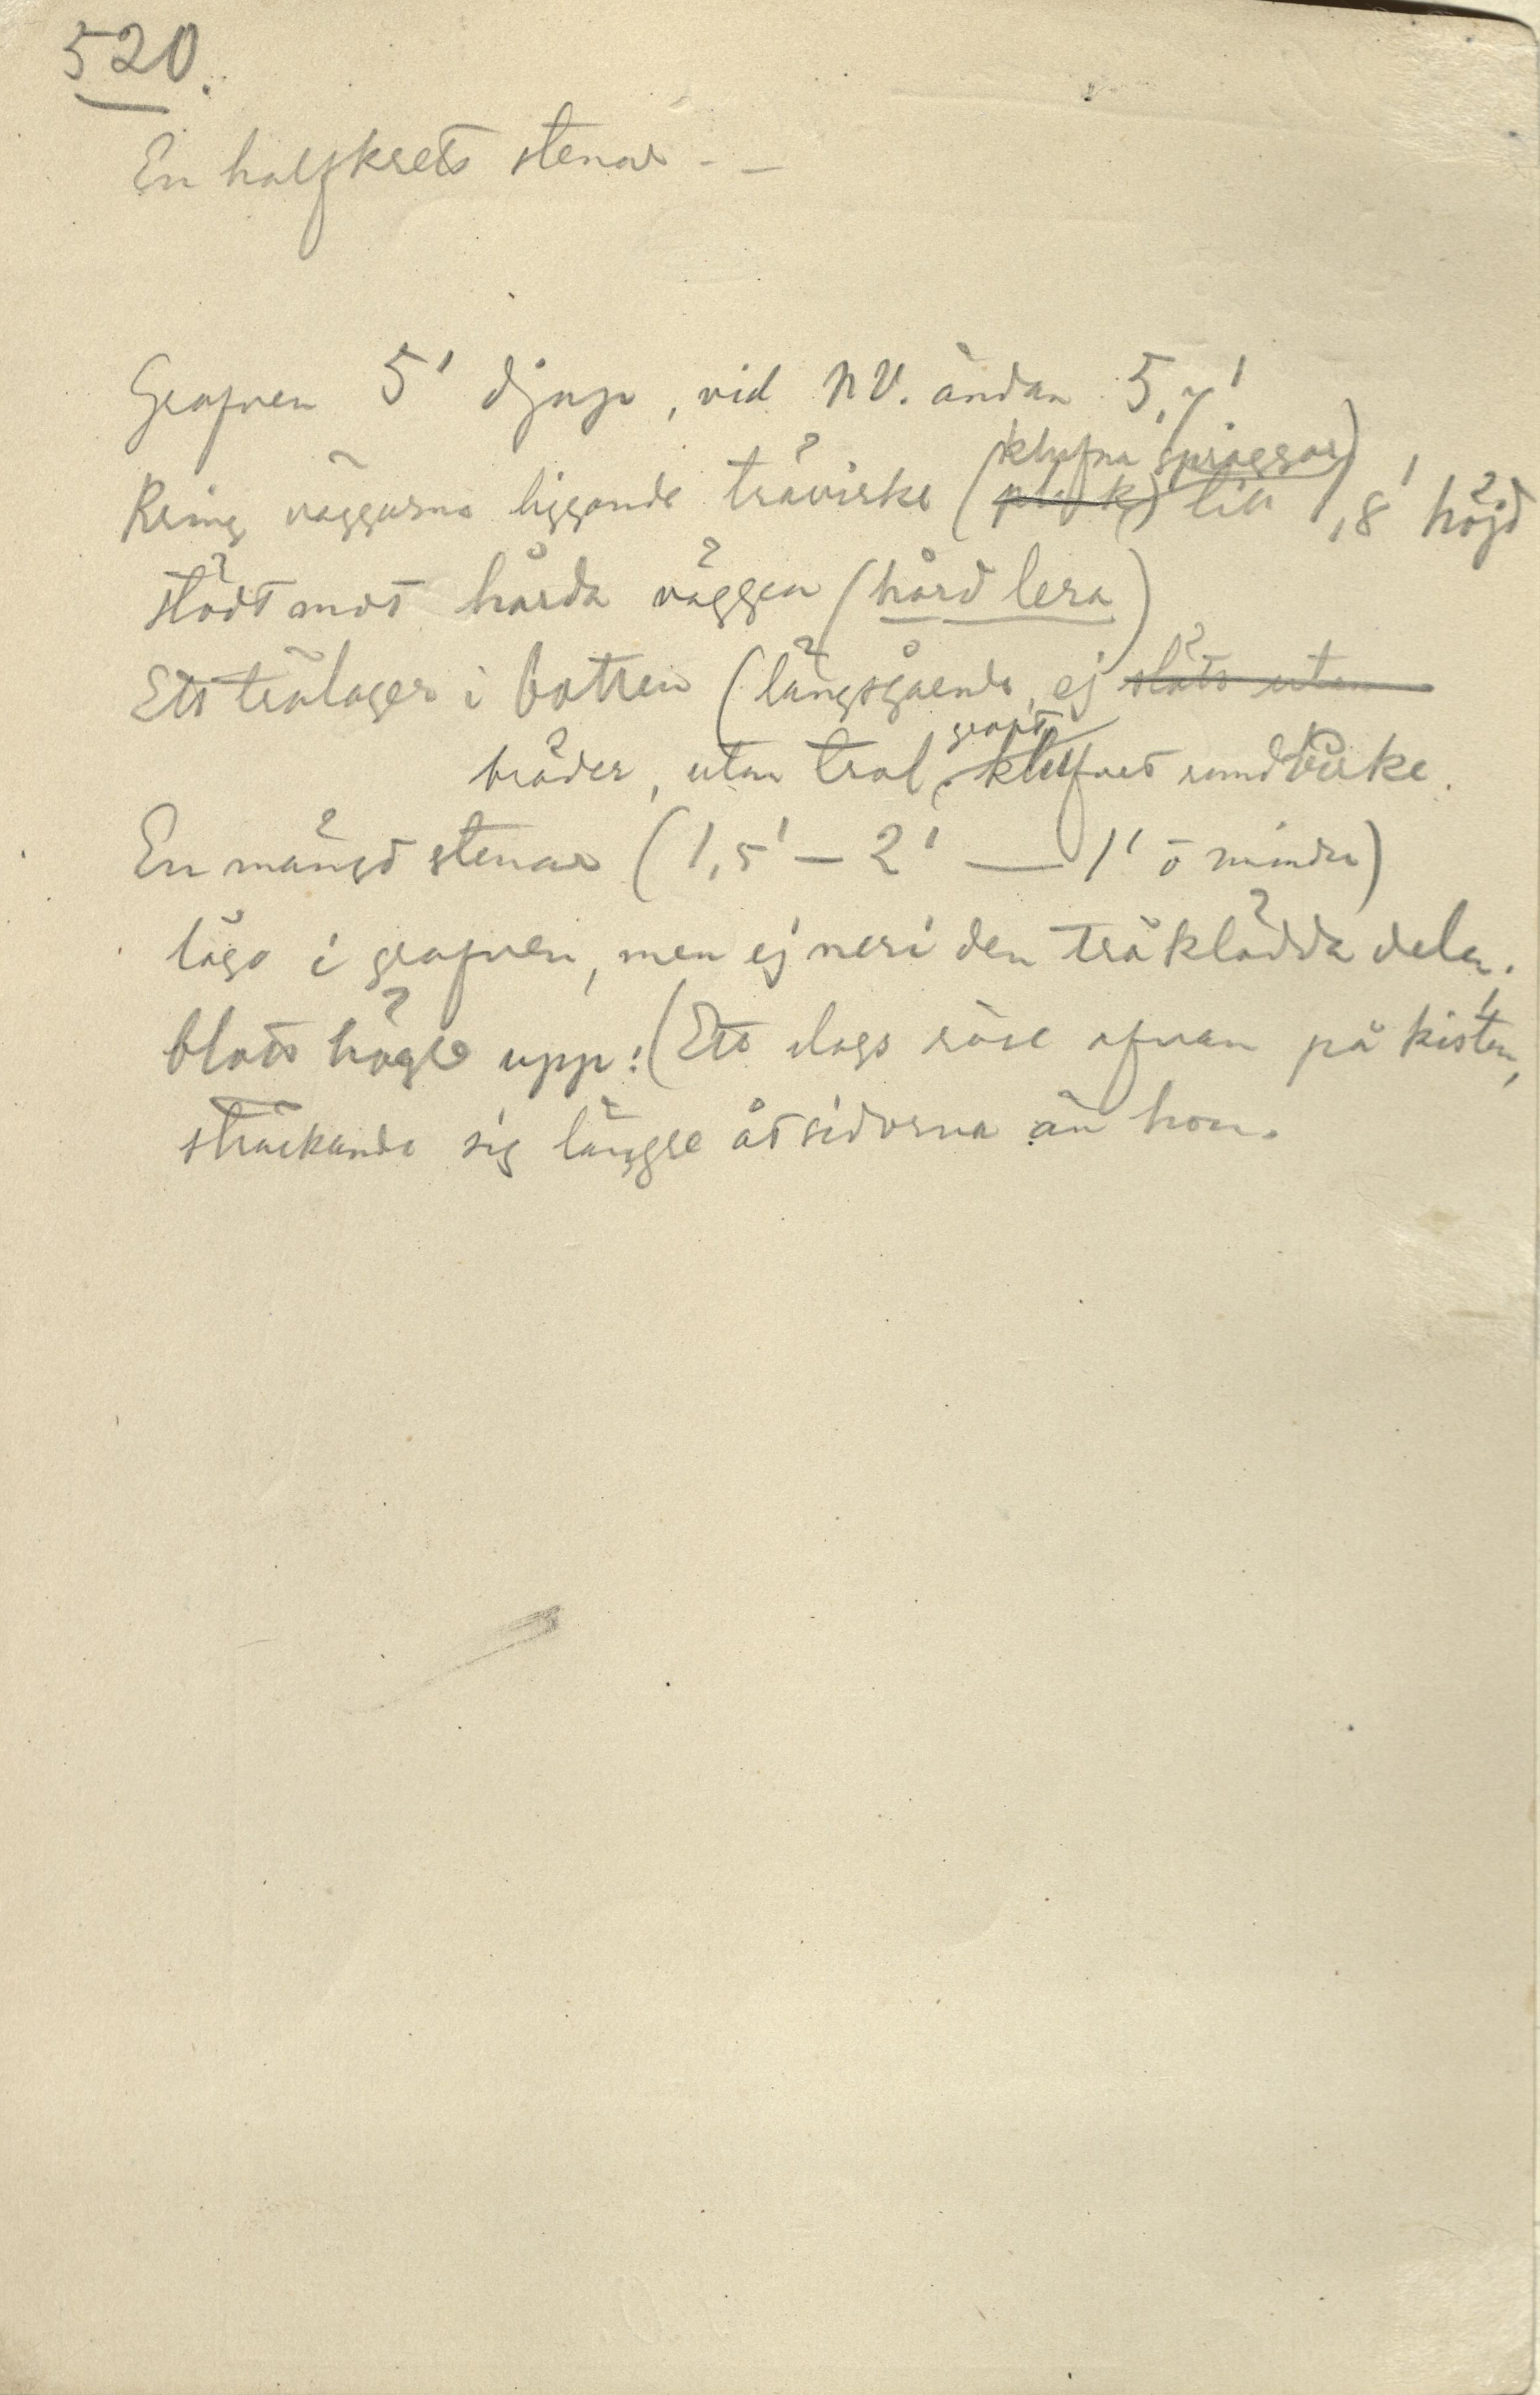 520.
En halfkrets stenar - -
Grafven 5' djup, vid NV. ändan 5,7'
klufna spräggor)
Kring väggarna liggande trävirke ( till 1,8' höjd
stödt mot hårda väggen (hård lera)
Ett trälager i bottnen (långsgående, ej släta utan
groft
bräder, utan klufvet rundvirke.
En mängd stenar (1,5' – 2' — 1' o mindre)
lågo i grafven, men ej neri den träklädda delen.
blott högre upp: (Ett slags röse ofvan på kistan,
sträckande sig längre åt sidorna än hon.